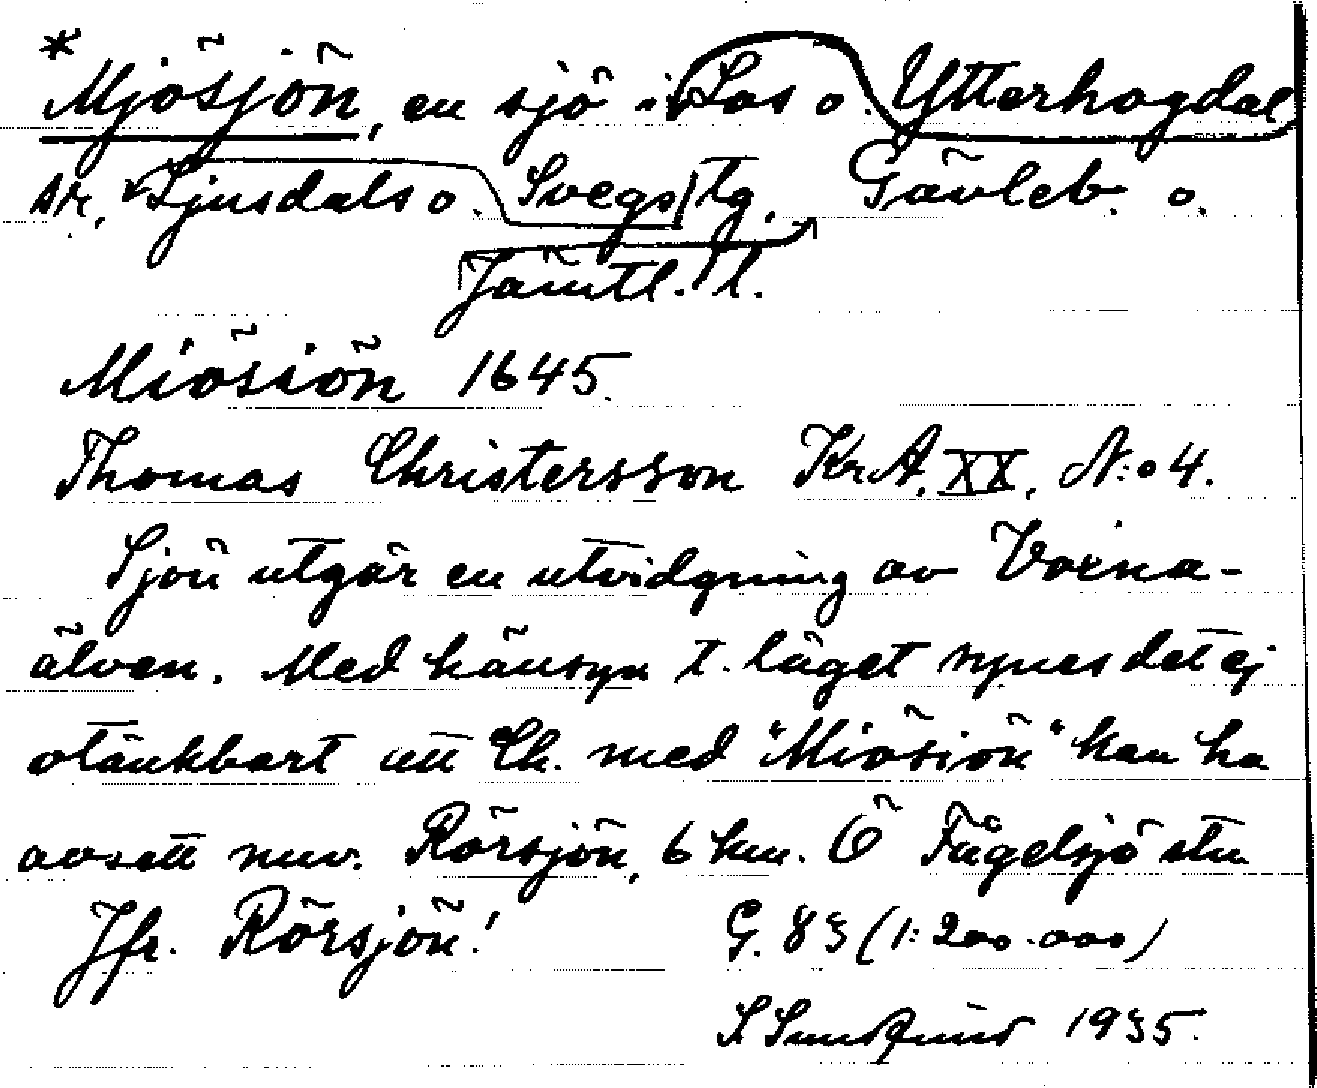 *Mjösjön, en sjö i Los o. Ytterhogdal
sr, Ljusdals o. Svegs tg. Gävleb. o.
Jämtl. l.
Miösiön 1645.
Thomas Christersson KrA. XX, N:o 4.
Sjön utgör en utvidgning av Voxna-
älven. Med hänsyn t. läget synes det ej
otänkbart att Ch. med "Miösiön" kan ha
avsett nuv. Rörsjön, 6 km. Ö Fågelsjö stn
Jfr. Rörsjön! G. 83 (1:200.000)
S 1935.